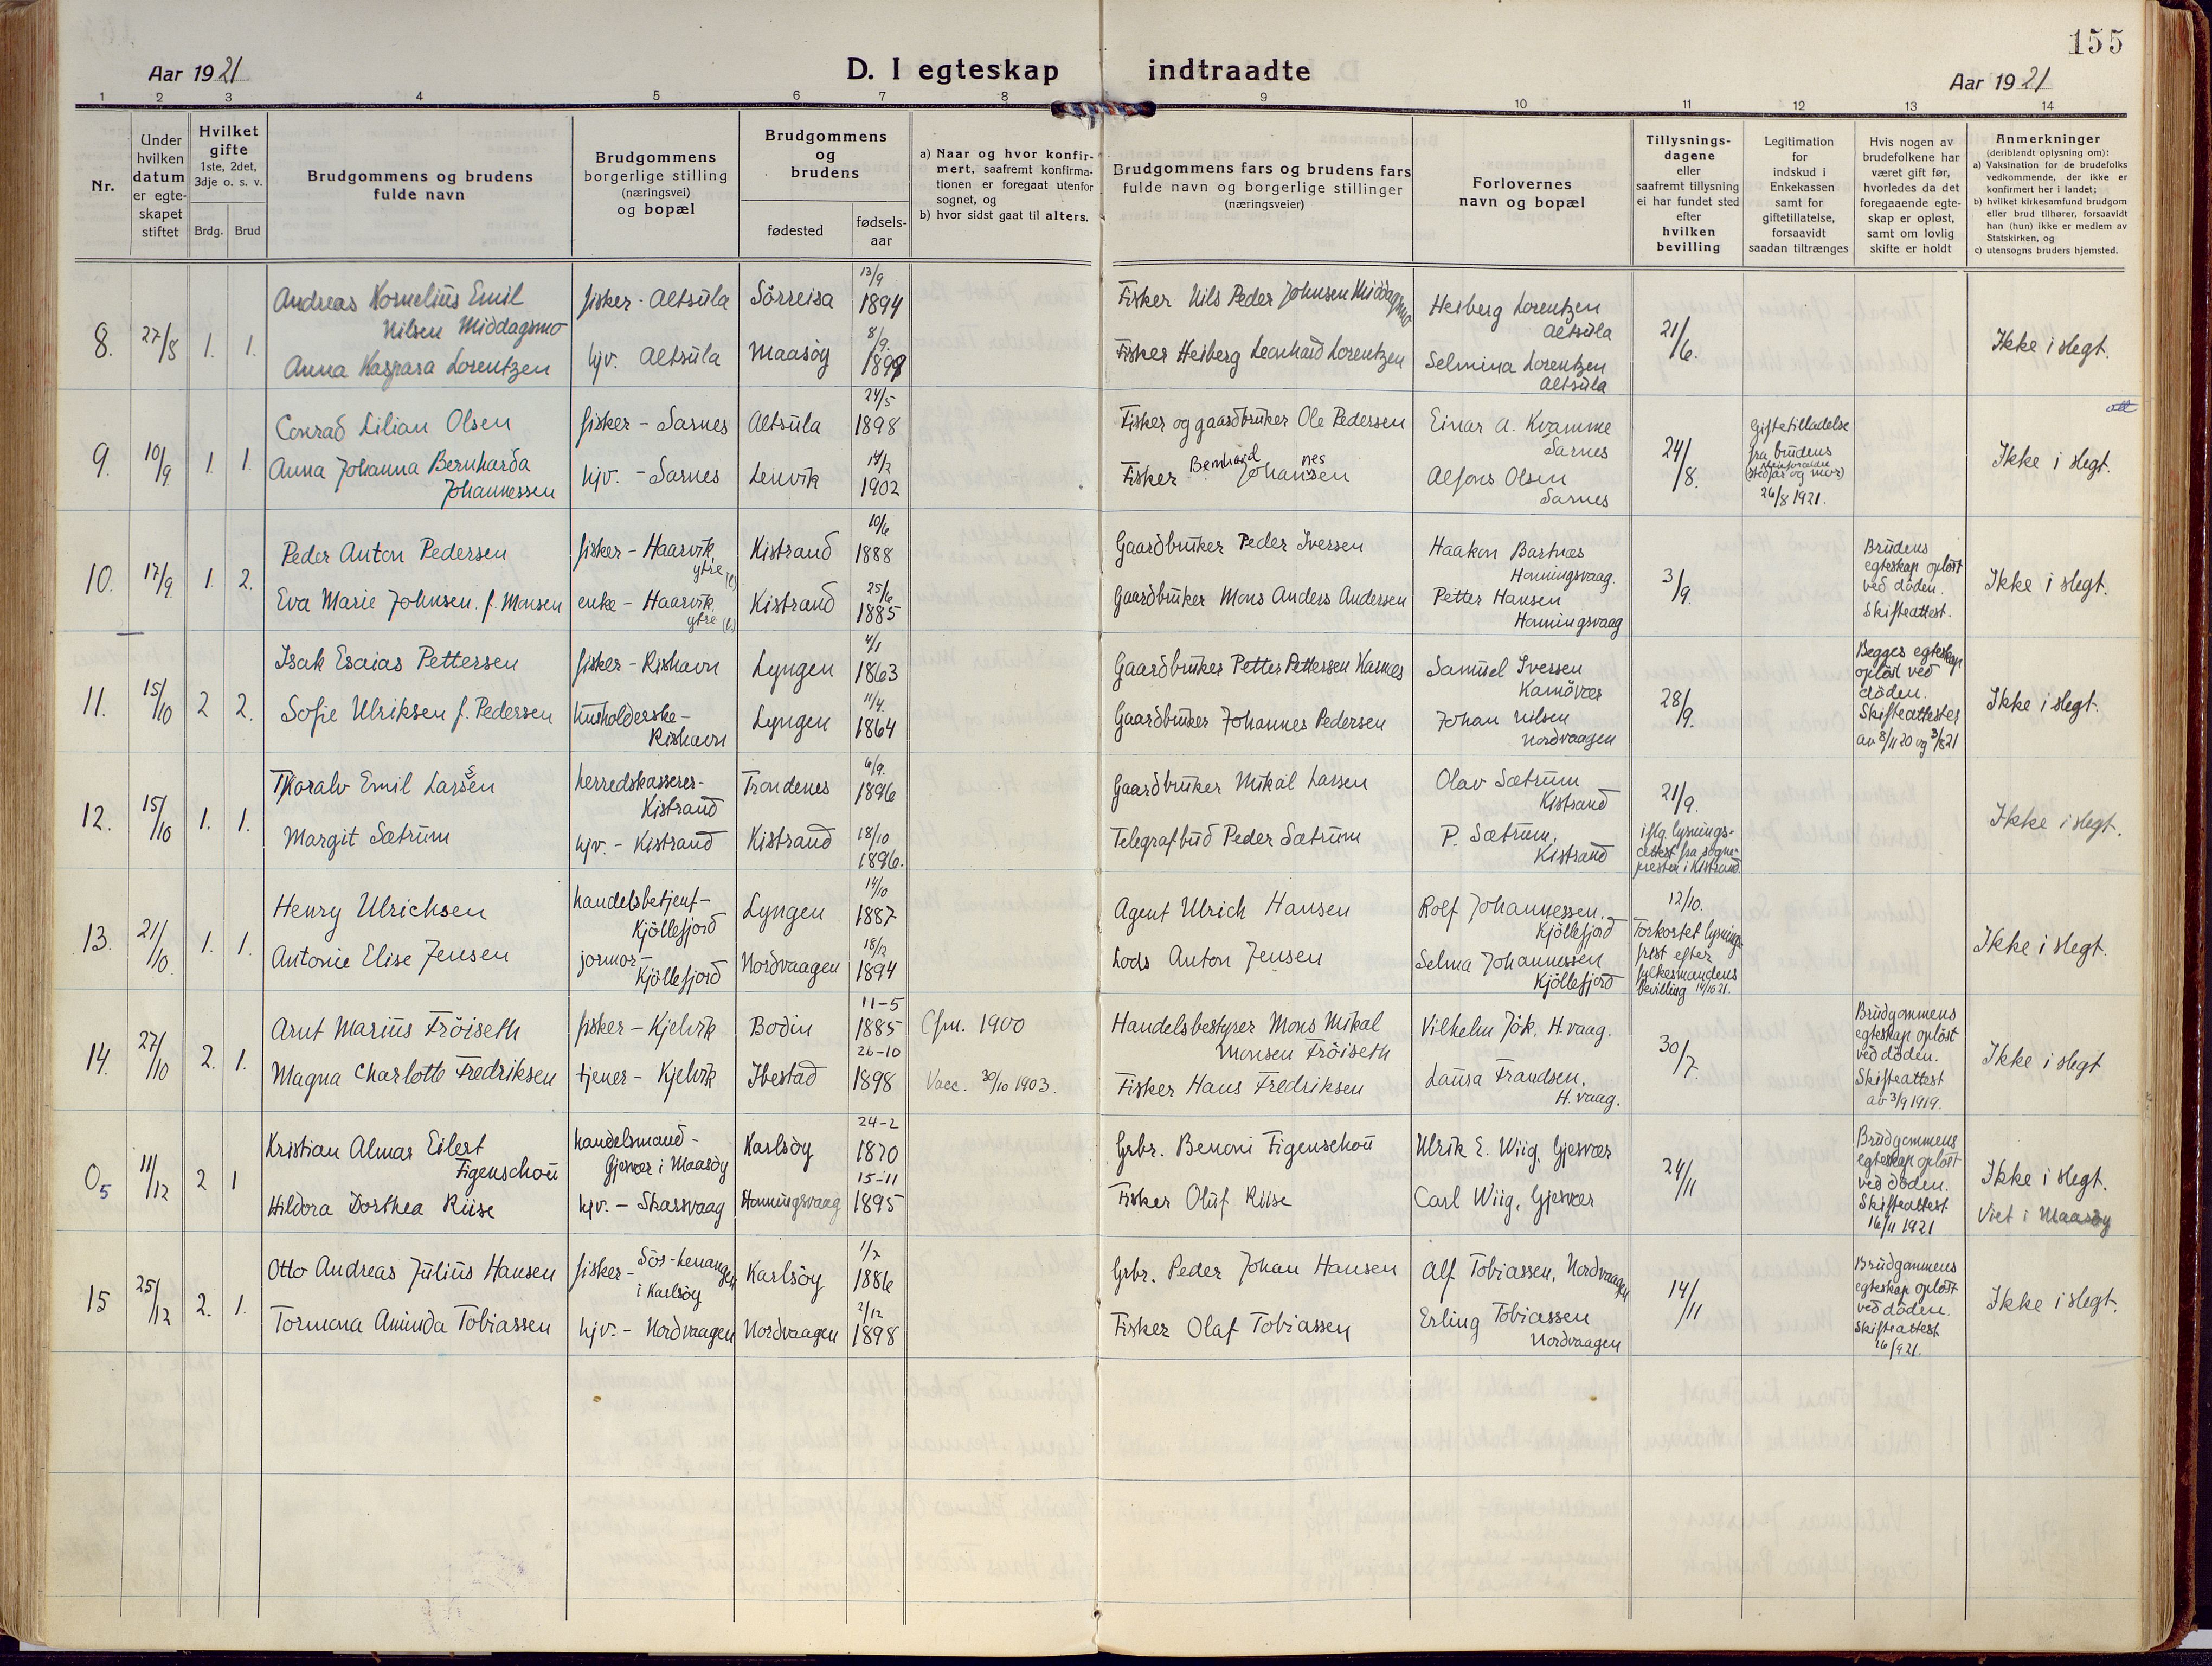 155
Aar 1921
D. I egteskap indtraadte
Aar 1921
1 2 3 4 5 6 7 8 9 10 11 12 13 14
Nr.
Under hvilken datum er egteskapet stiftet
Hvilket gifte 1ste, 2det, 3dje o. s. v.
Brdg. Brud
Brudgommens og brudens fulde navn
Brudgommens borgerlige stilling (næringsvei) og bopæl
Brudgommens og brudens
fødested
fødselsaar
a) Naar og hvor konfirmert, saafremt konfirmationen er foregaat utenfor sognet, og
b) hvor sidst gaat til alters.
Brudgommens fars og brudens fars fulde navn og borgerlige stillinger (næringsveier)
Forlovernes navn og bopæl
Tillysningsdagene eller saafremt tillysning ei har fundet sted efter hvilken bevilling
Legitimation for indskud i Enkekassen samt for giftetillatelse, forsaavidt saadan tiltrænges
Hvis nogen av brudefolkene har været gift før, hvorledes da det foregaaende egteskap er opløst, samt om lovlig skifte er holdt
Anmerkninger (deriblandt oplysning om):
a) Vaksination for de brudefolks vedkommende, der ikke er konfirmert her i landet;
b) hvilket kirkesamfund brudgom eller brud tilhører, forsaavidt han (hun) ikke er medlem av Statskirken, og
c) utensogns bruders hjemsted.
8. 27/8 1. 1.
Andreas Kornelius Emil Nilsen Middagsmo fisker - Altsula Sörreisa 13/9 1894 Fisker Nils Peder Johnsen Middagsmo Heiberg Lorentzen Altsula 21/6. Ikke i slegt.
Anna Kaspara Lorentzen hjv. Altsula Maasöy 8/9. 1899 Fisker Heiberg Leonhard Lorentzen Selmina Lorentzen Altsula
9. 10/9 1. 1.
Conrad Lilian Olsen fisker - Sarnes Altsula 24/5 1898 Fisker og gaardbruker Ole Pedersen Einar A. Kvamme Sarnes 24/8. Giftetilladelse fra brudens (stedfar og mor) 26/8 1921. Ikke i slegt.
Anna Johanna Bernharda Johannessen hjv. - Sarnes Lenvik 14/2 1902 Fisker Bernhard Johansen nes Alfons Olsen Sarnes
10. 17/9. 1. 2.
Peder Anton Pedersen fisker - Haarvik ytre (l) Kistrand 10/6 1888 Gaardbruker Peder Iversen Haakon Bartnæs Honningsvaag. 3/9. Brudens egteskap oplöst ved döden. Skifteattest. Ikke i slegt.
Eva Marie Johnsen. f. Monsen enke - Haarvik ytre (l) Kistrand 25/6 1885 Gaardbruker Mons Anders Andersen Petter Hansen Honningsvaag
11. 15/10 2 2.
Isak Esaias Pettersen fisker - Rishavn Lyngen 4/1 1863 Gaardbruker Petter Pettersen Karnes Samuel Iversen Kamövær 28/9. Begges egteskap oplöst ved döden. Skifteattester av 8/11 20 og 3/8 21 Ikke i slegt.
Sofie Ulriksen f. Pedersen husholderske - Rishavn Lyngen 11/4. 1864 Gaardbruker Johannes Pedersen Johan Nilsen Nordvaagen
12. 15/10 1. 1.
Thoralv Emil Larssen herredskasserer - Kistrand Trondenes 6/9. 1896 Gaardbruker Mikal Larsen Olav Sætrum Kistrand 21/9. iflg. lysningsattest fra sognepresten i Kistrand. Ikke i slegt.
Margit Sætrum hjv. - Kistrand Kistrand 18/10 1896. Telegrafbud Peder Sætrum P. Sætrum, Kistrand
13. 21/10. 1. 1.
Henry Ulrichsen handelsbetjent - Kjöllefjord Lyngen 14/10 1887 Agent Ulrich Hansen Rolf Johannessen, Kjöllefjord 12/10. Forkortet lysningsfrist efter fylkesmandens bevilling 14/10 21. Ikke i slegt.
Antonie Elise Jensen jormor - Kjöllefjord Nordvaagen 18/2 1894 Lods Anton Jensen Selma Johannessen Kjöllefjord
14. 27/10 2. 1.
Arnt Marius Fröiseth fisker - Kjelvik Bodin 11-5 1885 Cfm. 1900 Handelsbestyrer Mons Mikal Monsen Fröiseth Vilhelm Jök. H.vaag. 30/7. Brudgommens egteskap oplöst ved döden. Skifteattest av 3/9 1919. Ikke i slegt
Magna Charlotte Fredriksen tjener - Kjelvik Ibestad 26-10 1898 Vacc. 30/10 1903. Fisker Hans Fredriksen Laura Frandsen, H.vaag.
05 11/12 2 1
Kristian Almar Eilert Figenschou handelsmand - Gjesvær i Maasöy Karlsöy 24-2 1870 Grbr. Benoni Figenschou Ulrik E. Wiig, Gjesvær 24/11 Brudgommens egteskap oplöst ved döden. Skifteattest 16/11 1921 Ikke i slegt. Viet i Maasöy
Hildora Dorthea Riise hjv. - Skarsvaag Honningsvaag 15-11 1895 Fisker Oluf Riise Carl Wiig, Gjesvær
15 25/12 2. 1.
Otto Andreas Julius Hansen fisker - Sör-Lenangen i Karlsöy Karlsöy 1/7 1886 Grbr. Peder Johan Hansen Alf Tobiassen, Nordvaagen 14/11 Brudgommens egteskap oplöst ved döden. Skifteattest 26/9 21. Ikke i slegt.
Tormona Aminda Tobiassen hjv. - Nordvaagen Nordvaagen 2/12 1898 Fisker Olaf Tobiassen Erling Tobiassen Nordvaagen